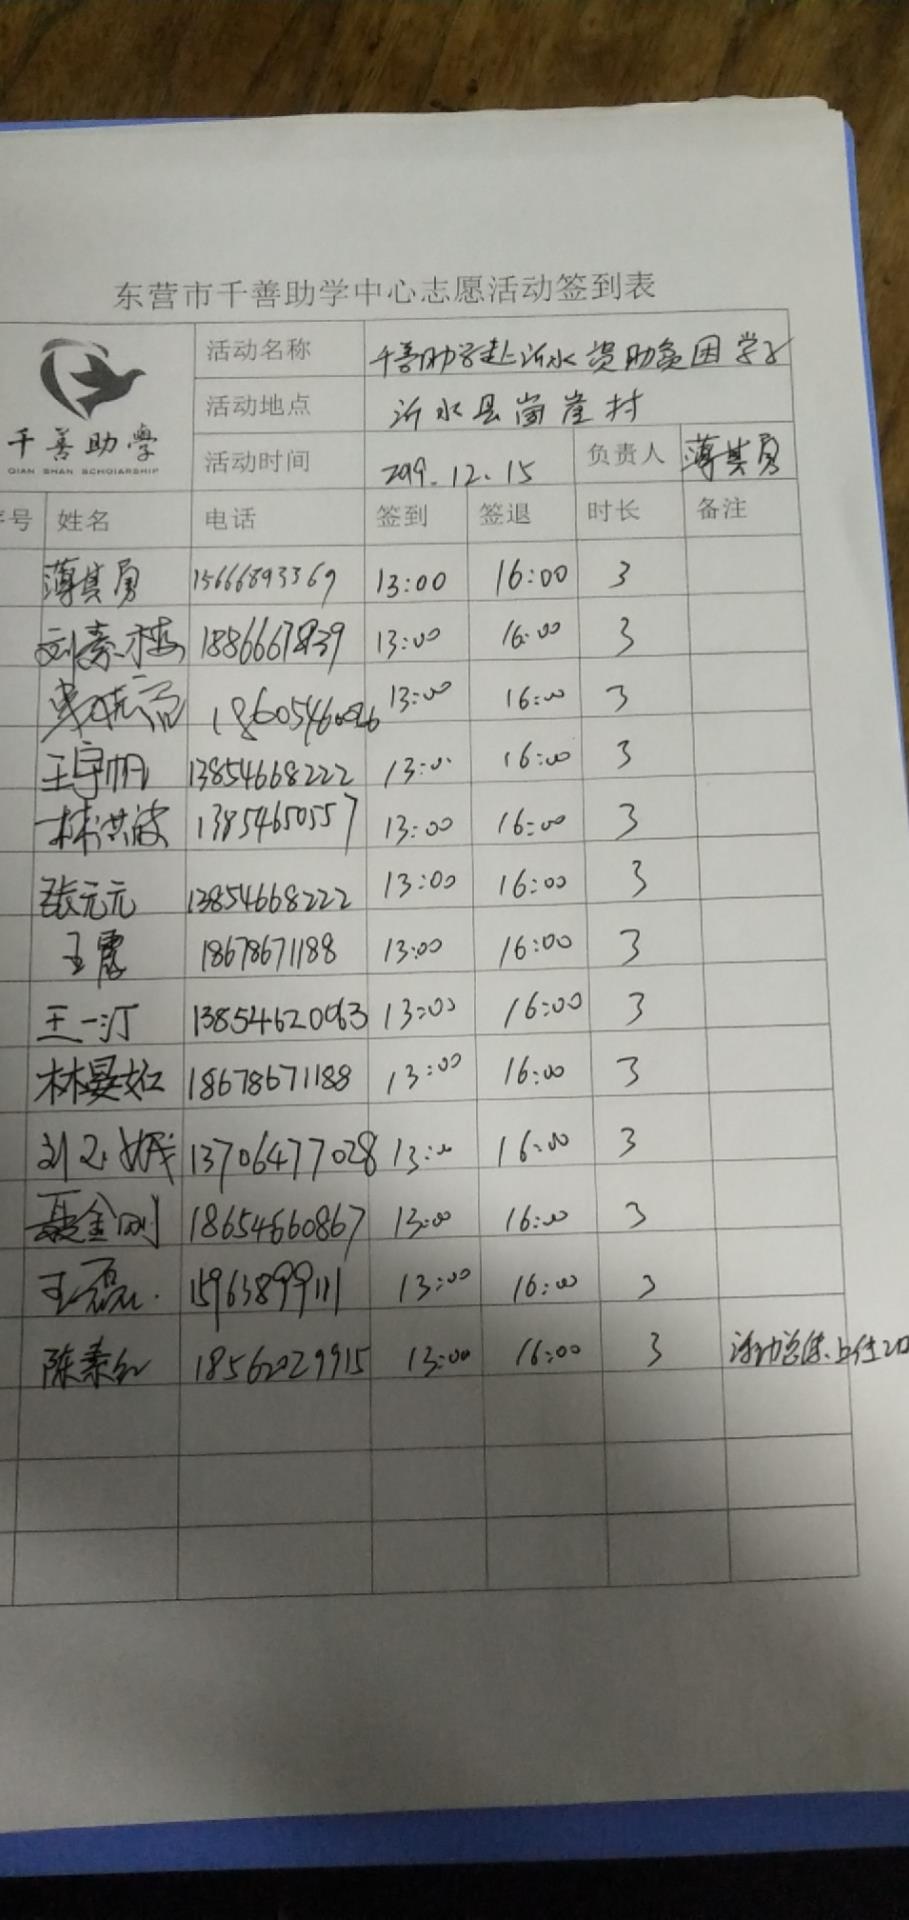 东营市千善助学中心志愿活动签到表
千善助学
QIAN SHAN SCHOLARSHIP
活动名称 千善助学赴沂水资助贫困学子
活动地点 沂水县岗崖村
活动时间 2019.12.15 负责人 薄其勇
序号 姓名 电话 签到 签退 时长 备注
薄其勇 15666893369 13:00 16:00 3
刘素梅 13:00 16:00 3
13:00 16:00 3
王宇帆 13854668222 13:00 16:00 3
林洪波 13854650557 13:00 16:00 3
张元元 13854668222 13:00 16:00 3
王震 18678671188 13:00 16:00 3
王一汀 13854620063 13:00 16:00 3
林晏如 18678671188 13:00 16:00 3
刘 13706477028 13:00 16:00 3
聂金刚 18654660867 13:00 16:00 3
王磊 15963899111 13:00 16:00 3
陈素红 18562029915 13:00 16:00 3 活动总